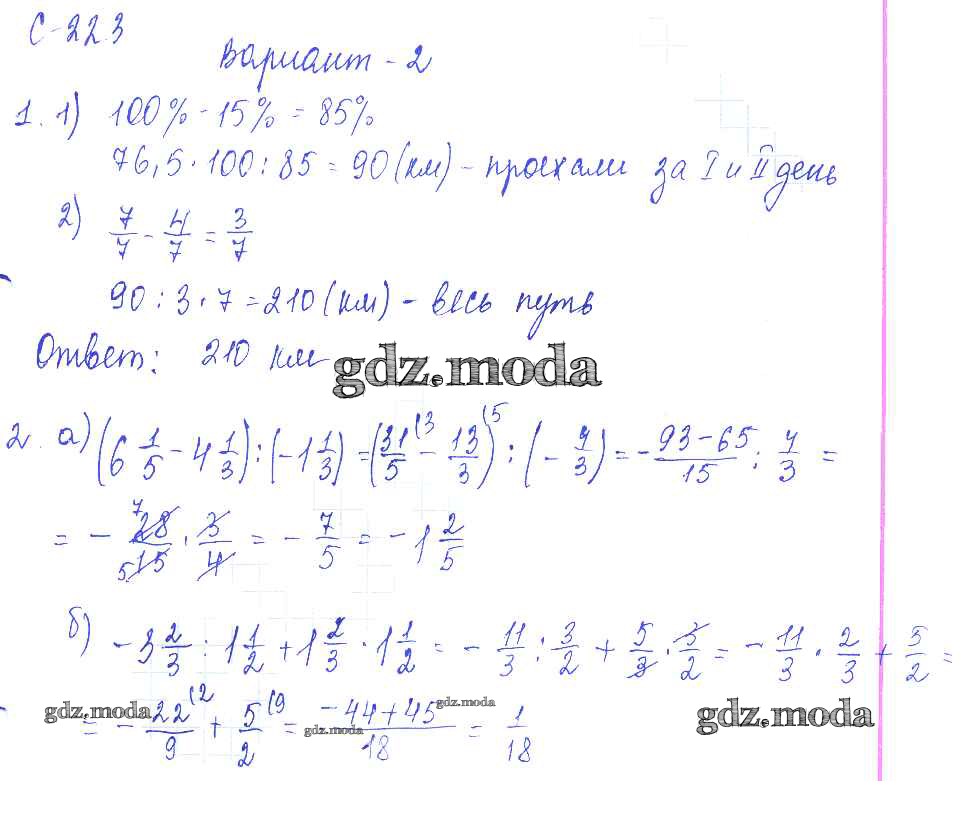 С-22.3
Вариант - 2
1. 1) 100% - 15% = 85%
76,5 · 100 : 85 = 90 (км) - проехали за I и II день
2) 7/7 - 4/7 = 3/7
90 : 3 · 7 = 210 (км) - весь путь
Ответ: 210 км
gdz.moda
2. а) (6 1/5 - 4 1/3) : (-1 1/3) = (31/5 (3 - 13/3 (5) : (- 4/3) = - 93-65/15 : 4/3 =
= - 28/15 7 5 · 3/4 = - 7/5 = -1 2/5
б) -3 2/3 : 1 1/2 + 1 2/3 · 1 1/2 = - 11/3 : 3/2 + 5/3 · 3/2 = - 11/3 · 2/3 + 5/2 =
= - 22/9 (2 + 5/2 (9 = -44+45/18 = 1/18
gdz.moda
gdz.moda
gdz.moda
gdz.moda